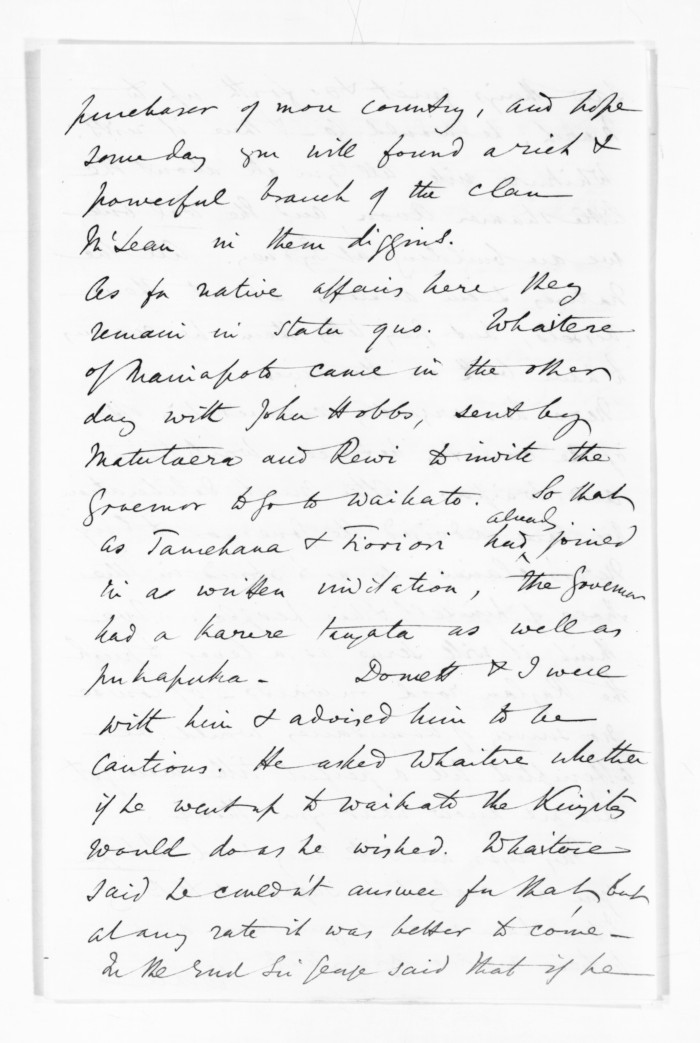 purchaser of more country, and hope
some day you will found a rich &
powerful branch of the clan
McLean in them diggins.
As for native affairs here they
remain in statu quo. Whaitere
of Maniapoto came in the other
day with John Hobbs, sent by
Matutaera and Rewi to invite the
Governor to go to Waikato. So that
as Tamehana & Tioriori had already joined
in a written invitation, the Governor
had a karere tangata as well as
pukapuka - Domett & I were
with him & advised him to be
cautious. He asked Whaitere whether
if he went up to Waikato the Kingites
would do as he wished. Whaitere
said he couldn't answer for that, but
at any rate it was better to come -
In the end Sir George said that if he